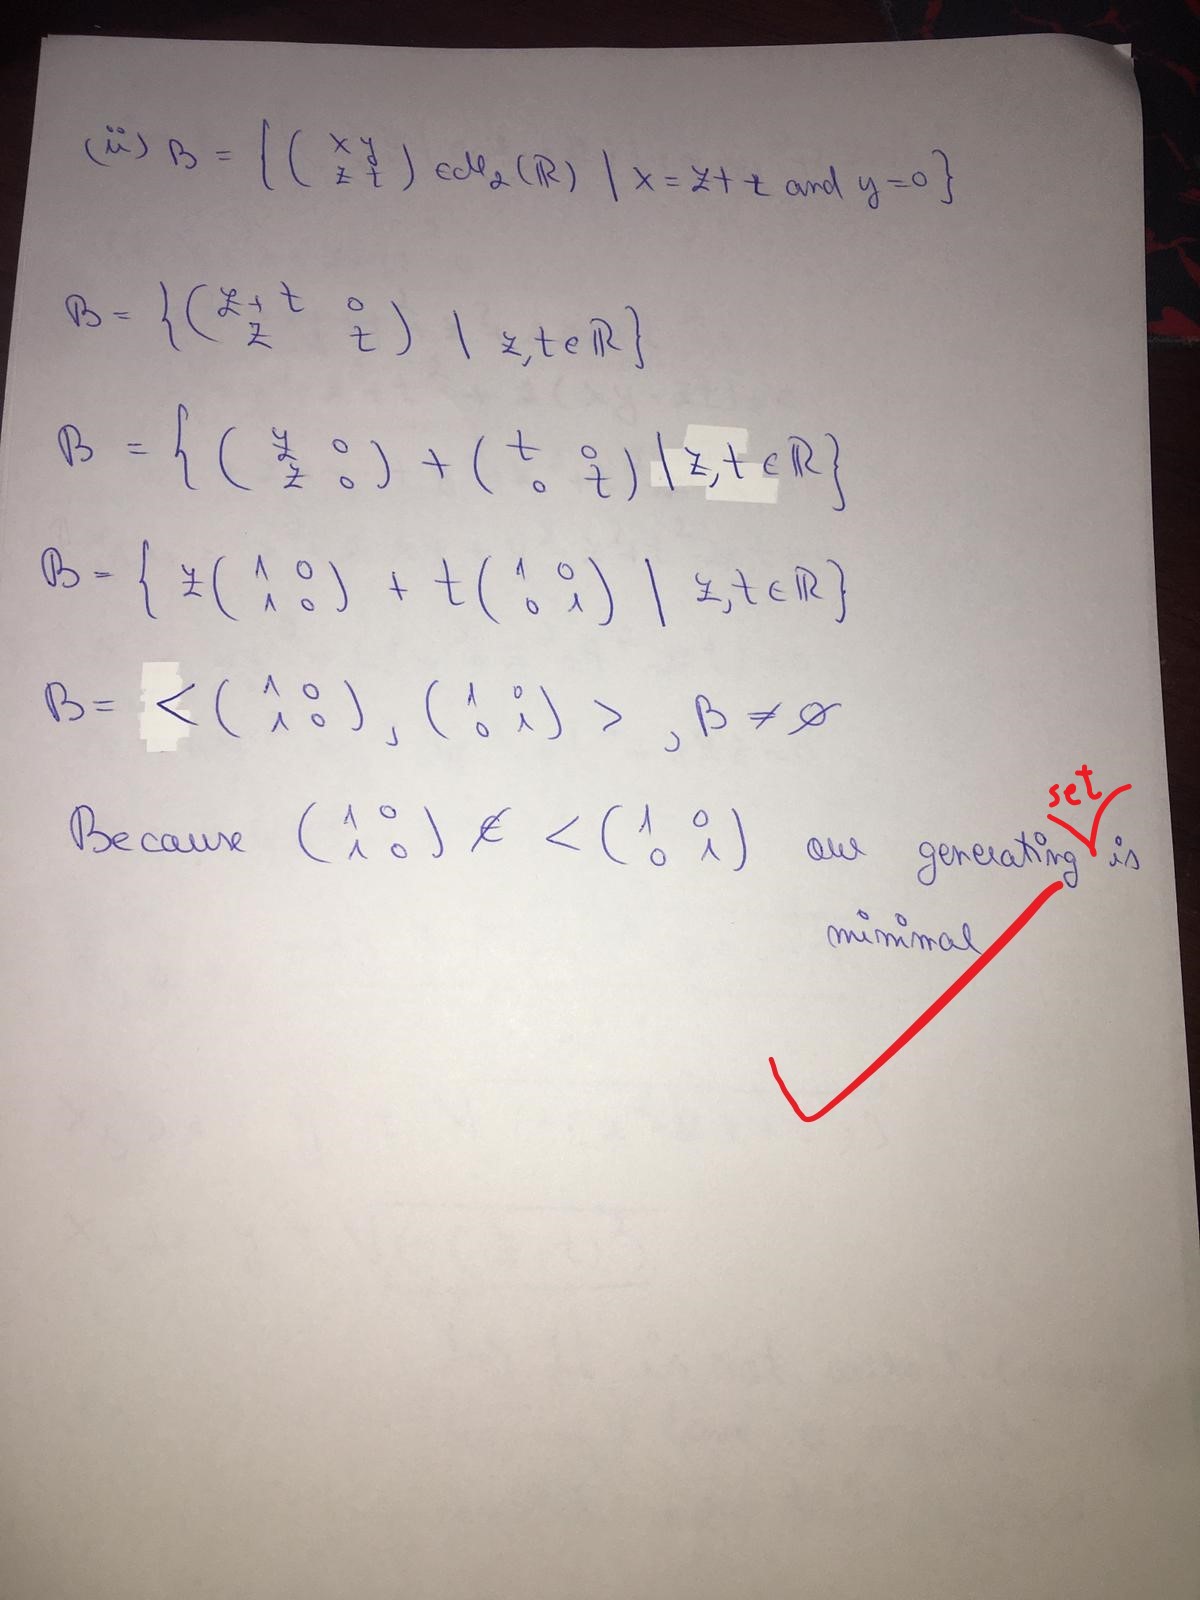 (ii) B = { ( x y
z t ) ∈ M₂(ℝ) | x = z + t and y = 0 }
B = { ( z + t 0
z t ) | z, t ∈ ℝ }
B = { ( z 0
z 0 ) + ( t 0
0 t ) | z, t ∈ ℝ }
B = { z ( 1 0
1 0 ) + t ( 1 0
0 1 ) | z, t ∈ ℝ }
B = < ( 1 0
1 0 ) , ( 1 0
0 1 ) > , B ≠ ∅
set
Because ( 1 0
1 0 ) ∉ < ( 1 0
0 1 ) our generating is
minimal